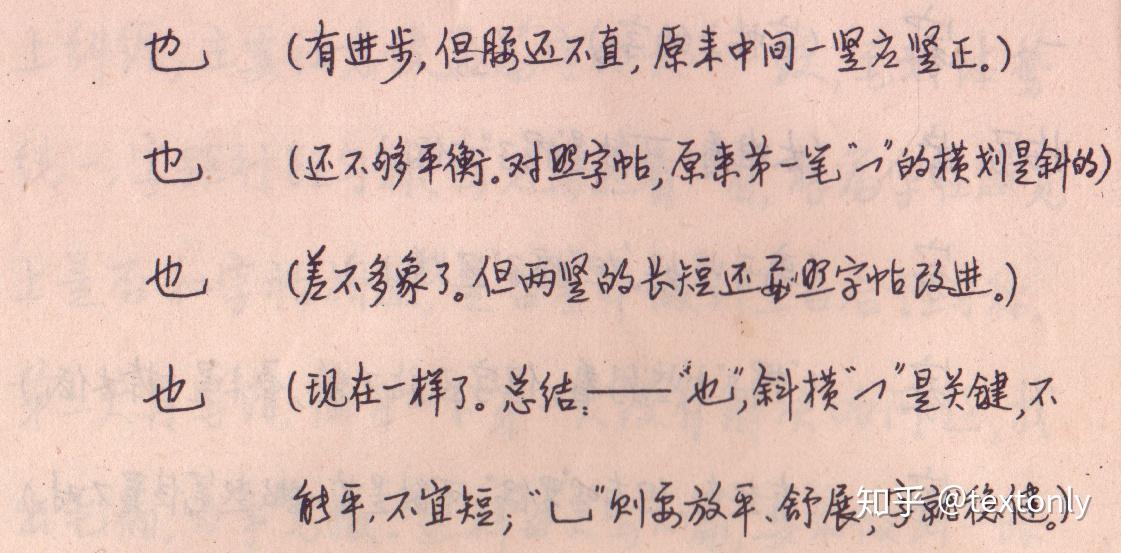 也 (有进步,但腰还不直,原来中间一竖应竖正。)
也 (还不够平衡。对照字帖,原来第一笔“㇆”的横划是斜的)
也 (差不多象了。但两竖的长短还要照字帖改进。)
也 (现在一样了。总结:——“也”,斜横“㇆”是关键,不
能平,不宜短;“乚”则要放平、舒展,字就稳健。)
知乎 @textonly